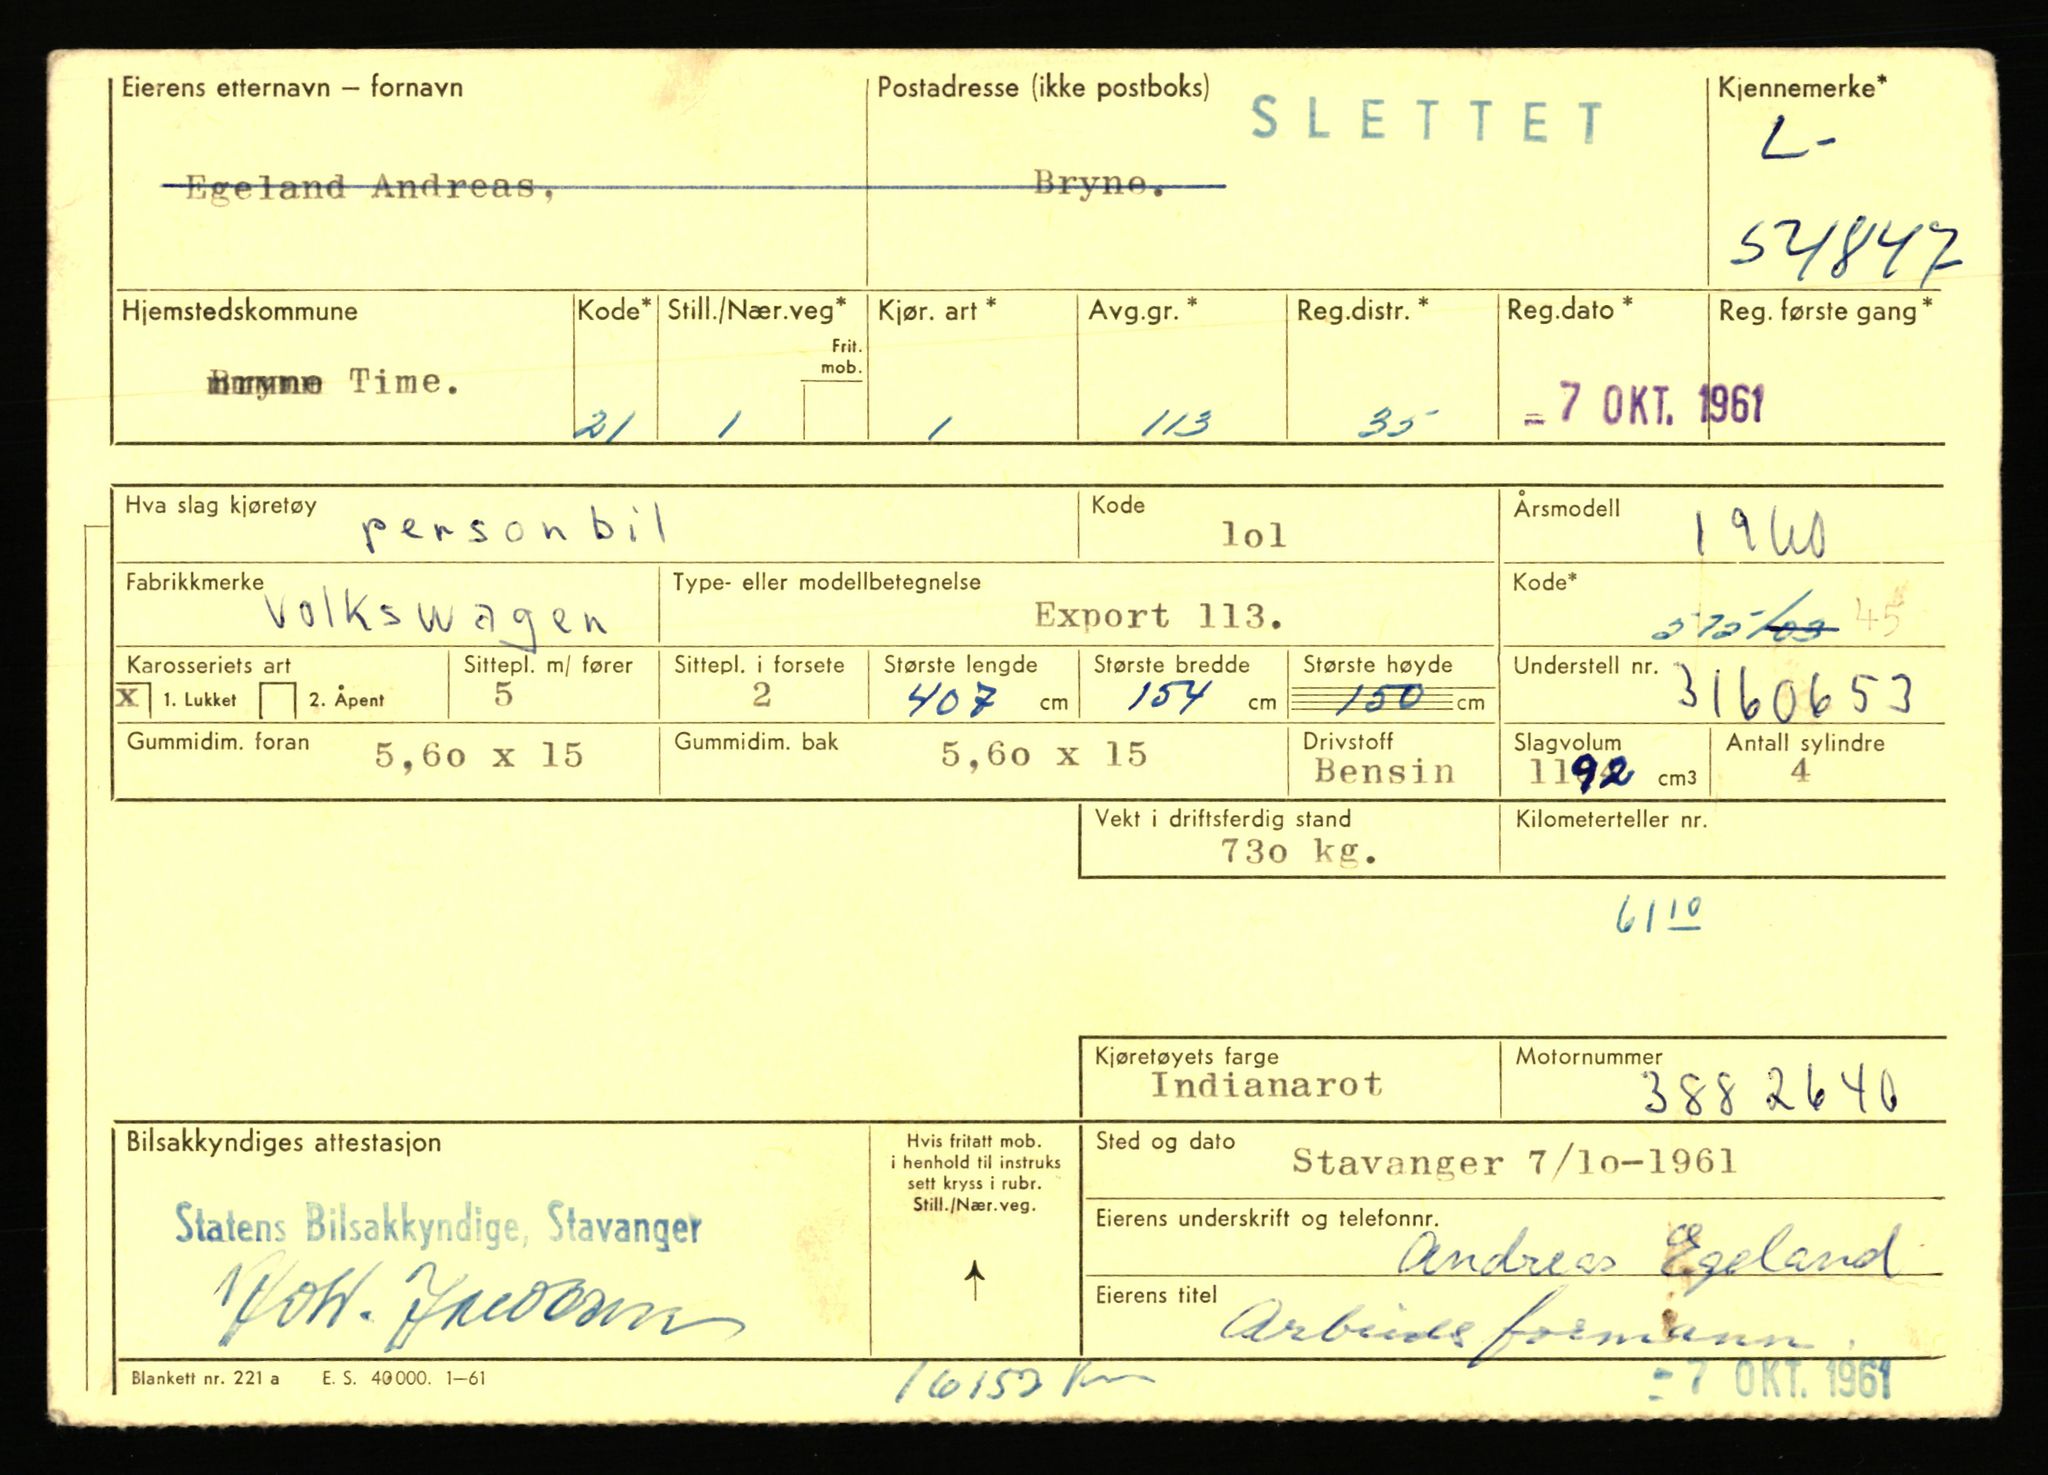 Eierens etternavn – fornavn
Postadresse (ikke postboks)
SLETTET
Kjennemerke*
L-
54847
Egeland Andreas,
Bryne.
Hjemstedskommune
Kode*
Still./Nær.veg*
Frit. mob.
Kjør. art*
Avg.gr.*
Reg.distr.*
Reg.dato*
Reg. første gang*
Time.
21
1
1
113
35
- 7 OKT. 1961
Hva slag kjøretøy
personbil
Kode
lol
Årsmodell
1960
Fabrikkmerke
Volkswagen
Type- eller modellbetegnelse
Export 113.
Kode*
45
Karosseriets art
X 1. Lukket 2. Åpent
Sittepl. m/ fører
5
Sittepl. i forsete
2
Største lengde
407 cm
Største bredde
154 cm
Største høyde
150 cm
Understell nr.
3160653
Gummidim. foran
5,6o x 15
Gummidim. bak
5,6o x 15
Drivstoff
Bensin
Slagvolum
1192 cm3
Antall sylindre
4
Vekt i driftsferdig stand
73o kg.
Kilometerteller nr.
61 10
Kjøretøyets farge
Indianarot
Motornummer
3882640
Bilsakkyndiges attestasjon
Statens Bilsakkyndige, Stavanger
Hvis fritatt mob.
i henhold til instruks
sett kryss i rubr.
Still./Nær.veg.
Sted og dato
Stavanger 7/1o-1961
Eierens underskrift og telefonnr.
Andreas Egeland
Eierens titel
Arbeidsformann.
Blankett nr. 221 a E. S. 40000. 1–61
16152 km
- 7 OKT. 1961